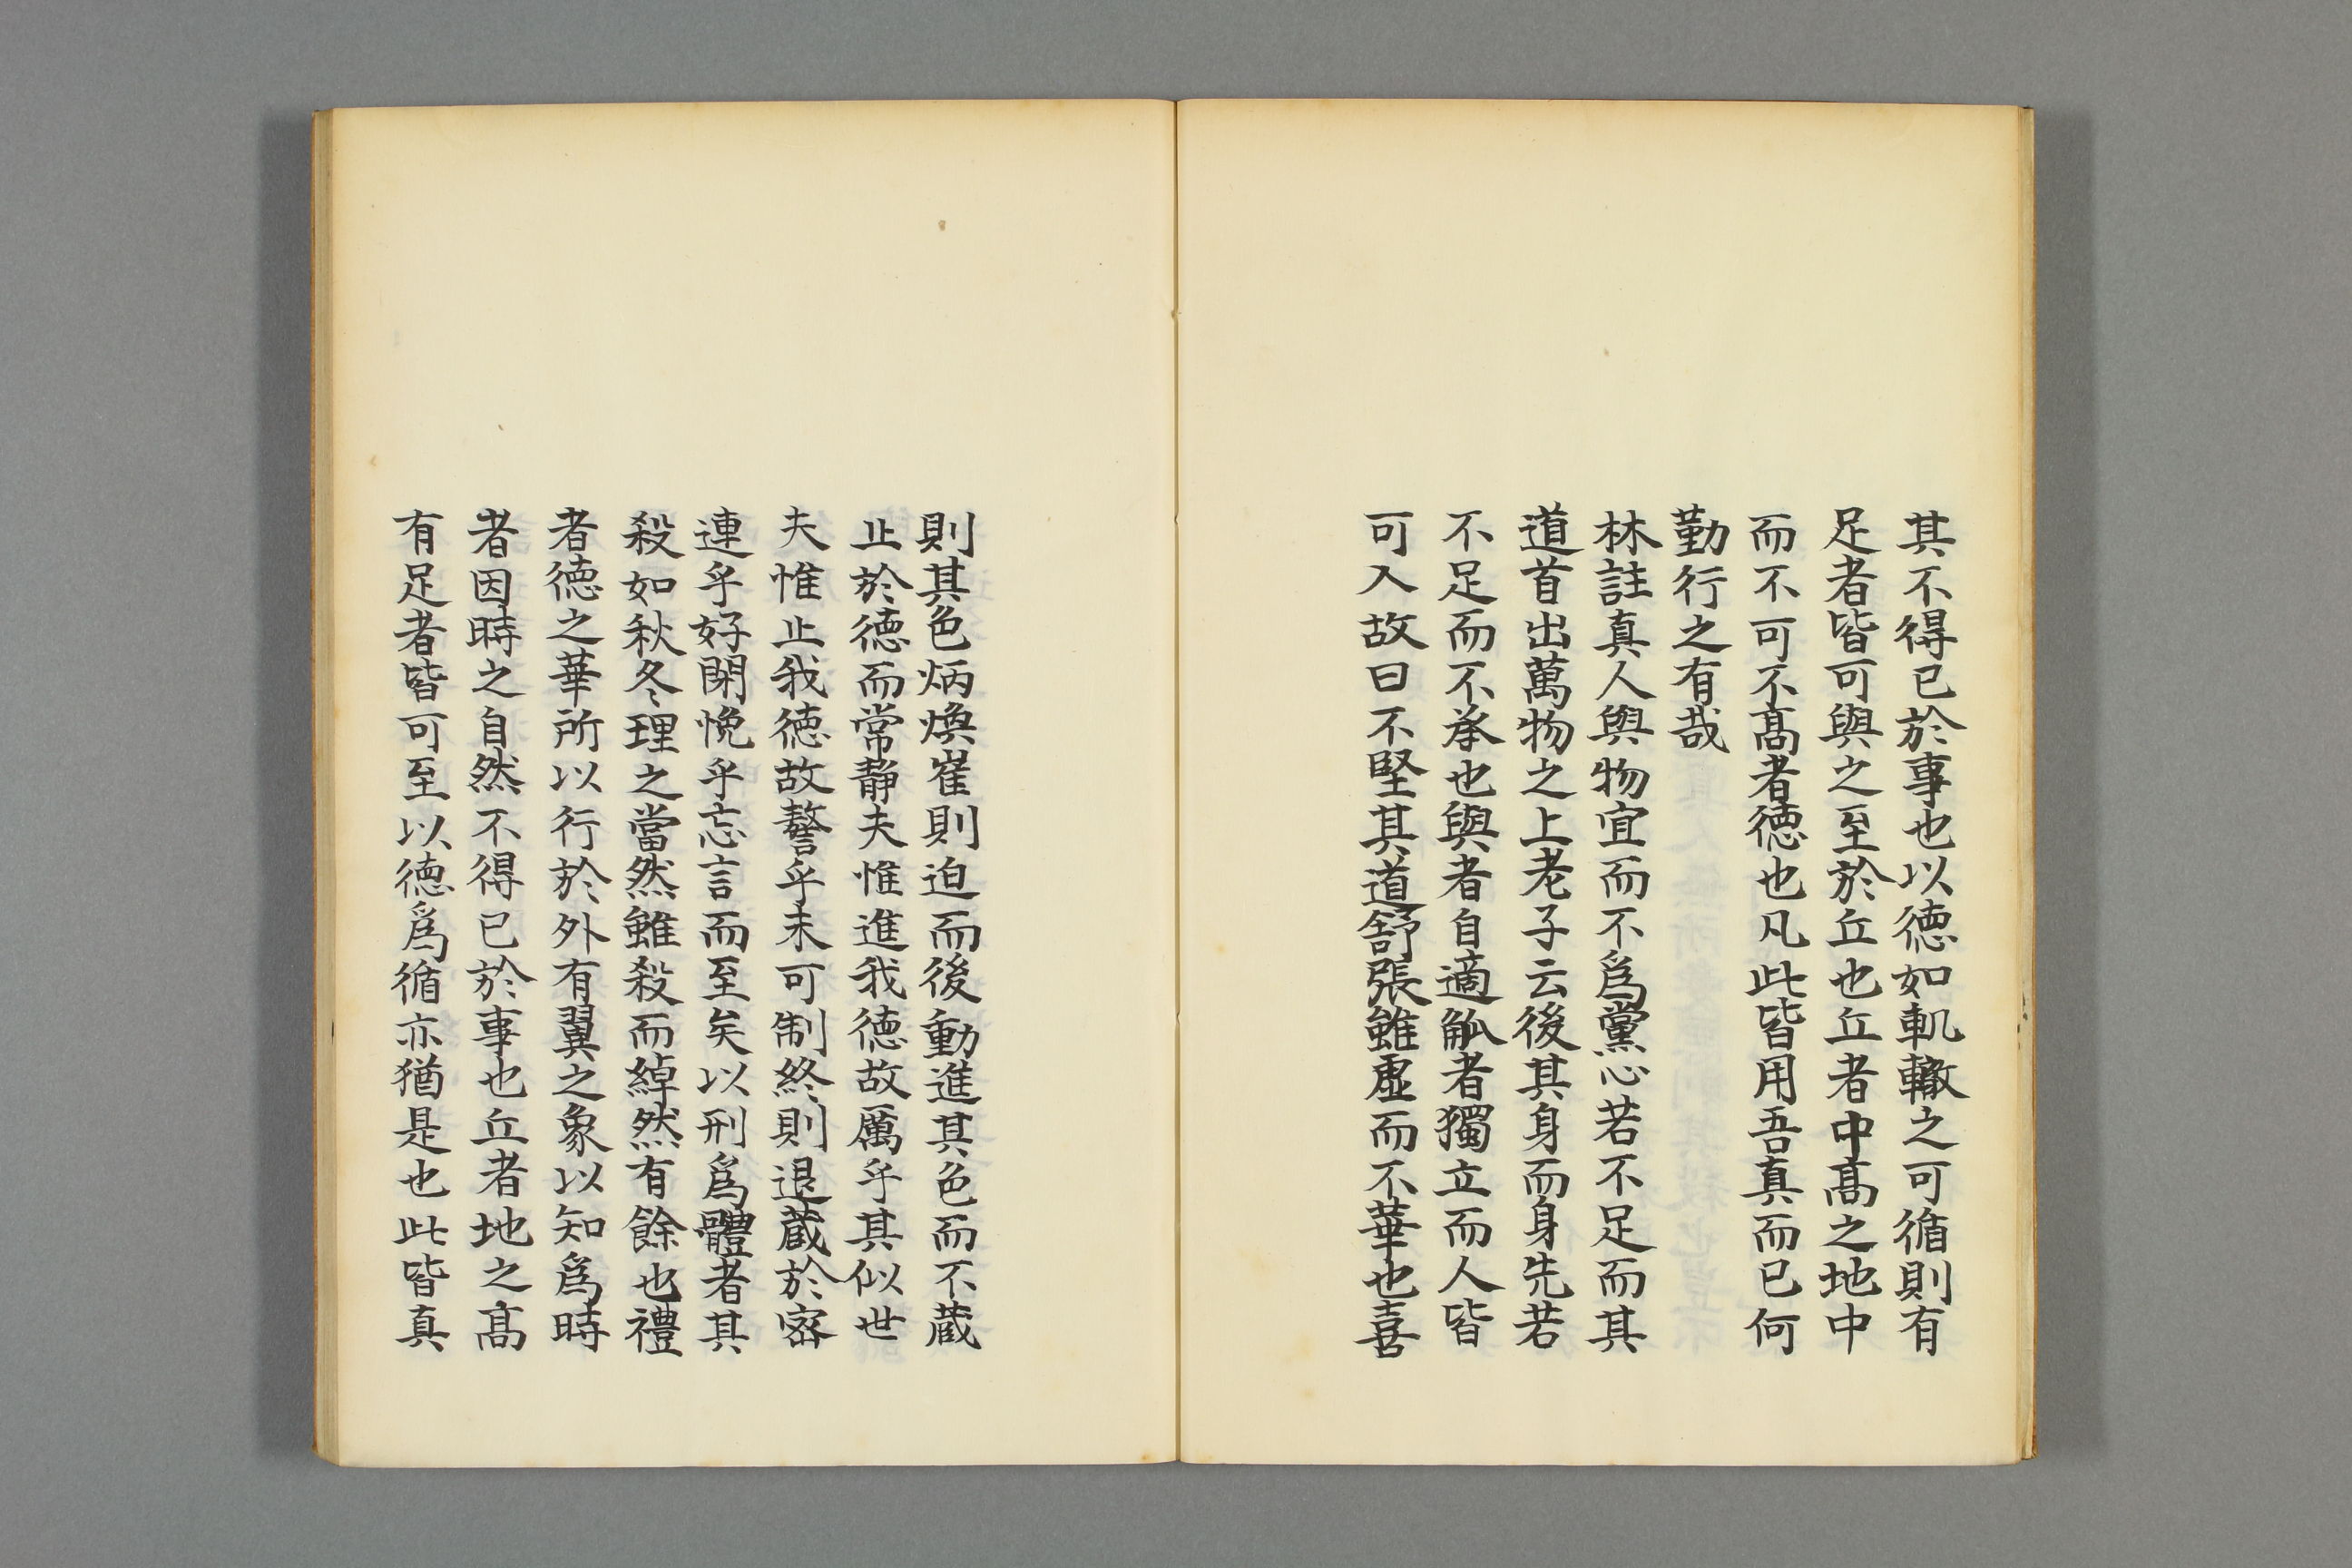 其不得已於事也以徳如軌轍之可循則有
足者皆可與之至於丘也丘者中髙之地中
而不可不髙者徳也凡此皆用吾真而已何
勤行之有哉
林註真人與物宜而不爲黨心若不足而其
道首出萬物之上老子云後其身而身先若
不足而不承也與者自適觚者獨立而人皆
可入故曰不堅其道舒張雖虚而不華也喜
則其色炳煥崔則迫而後動進其色而不蔵
止於徳而常靜夫惟進我徳故厲乎其似世
夫惟止我徳故謷乎未可制終則退蔵於宻
連乎好閑悗乎忘言而至矣以刑爲體者其
殺如秋冬理之當然雖殺而綽然有餘也禮
者徳之華所以行於外有翼之象以知爲時
者因時之自然不得已於事也丘者地之髙
有足者皆可至以徳爲循亦猶是也此皆真